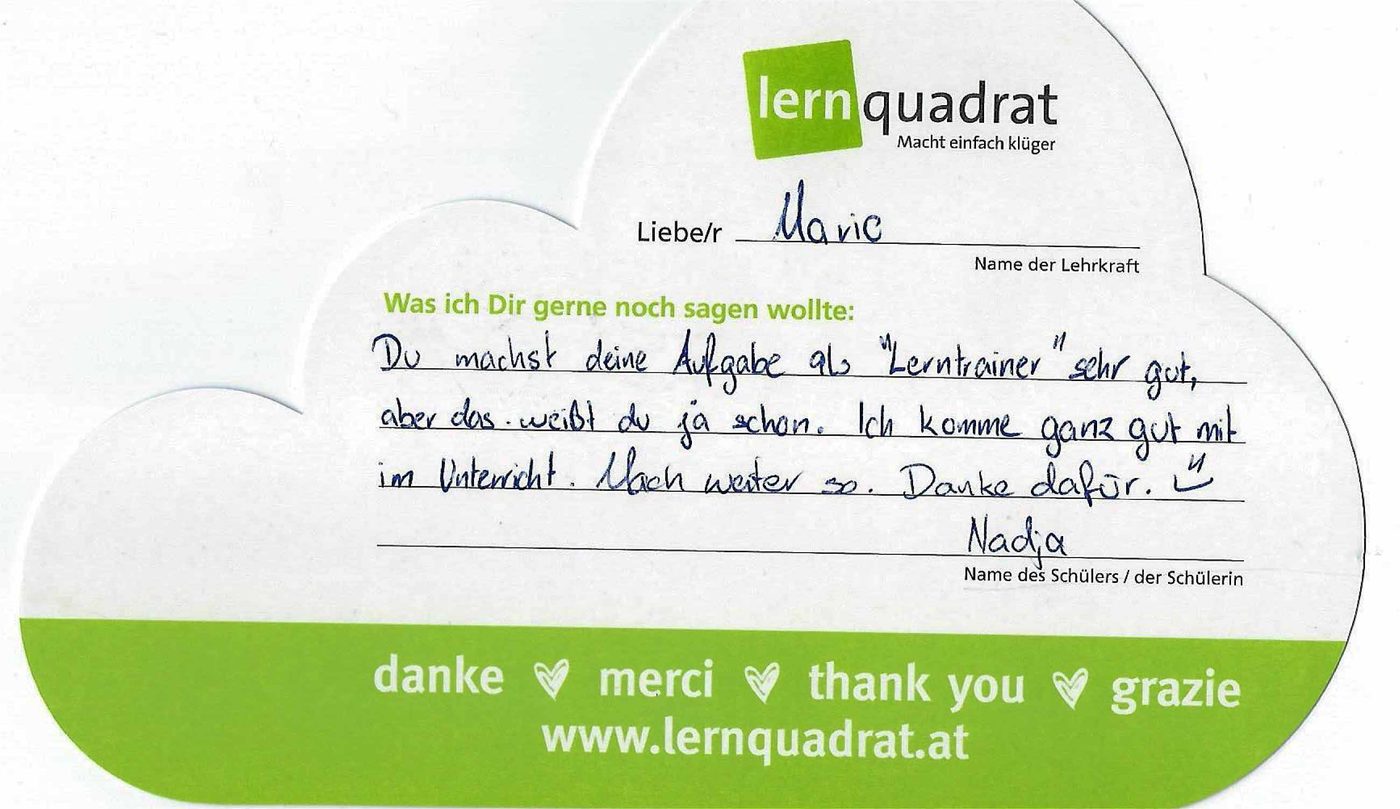 lernquadrat
Macht einfach klüger
Liebe/r Mario
Name der Lehrkraft
Was ich Dir gerne noch sagen wollte:
Du machst deine Aufgabe als "Lerntrainer" sehr gut,
aber das weißt du ja schon. Ich komme ganz gut mit
im Unterricht. Mach weiter so. Danke dafür.
Nadja
Name des Schülers / der Schülerin
danke merci thank you grazie
www.lernquadrat.at